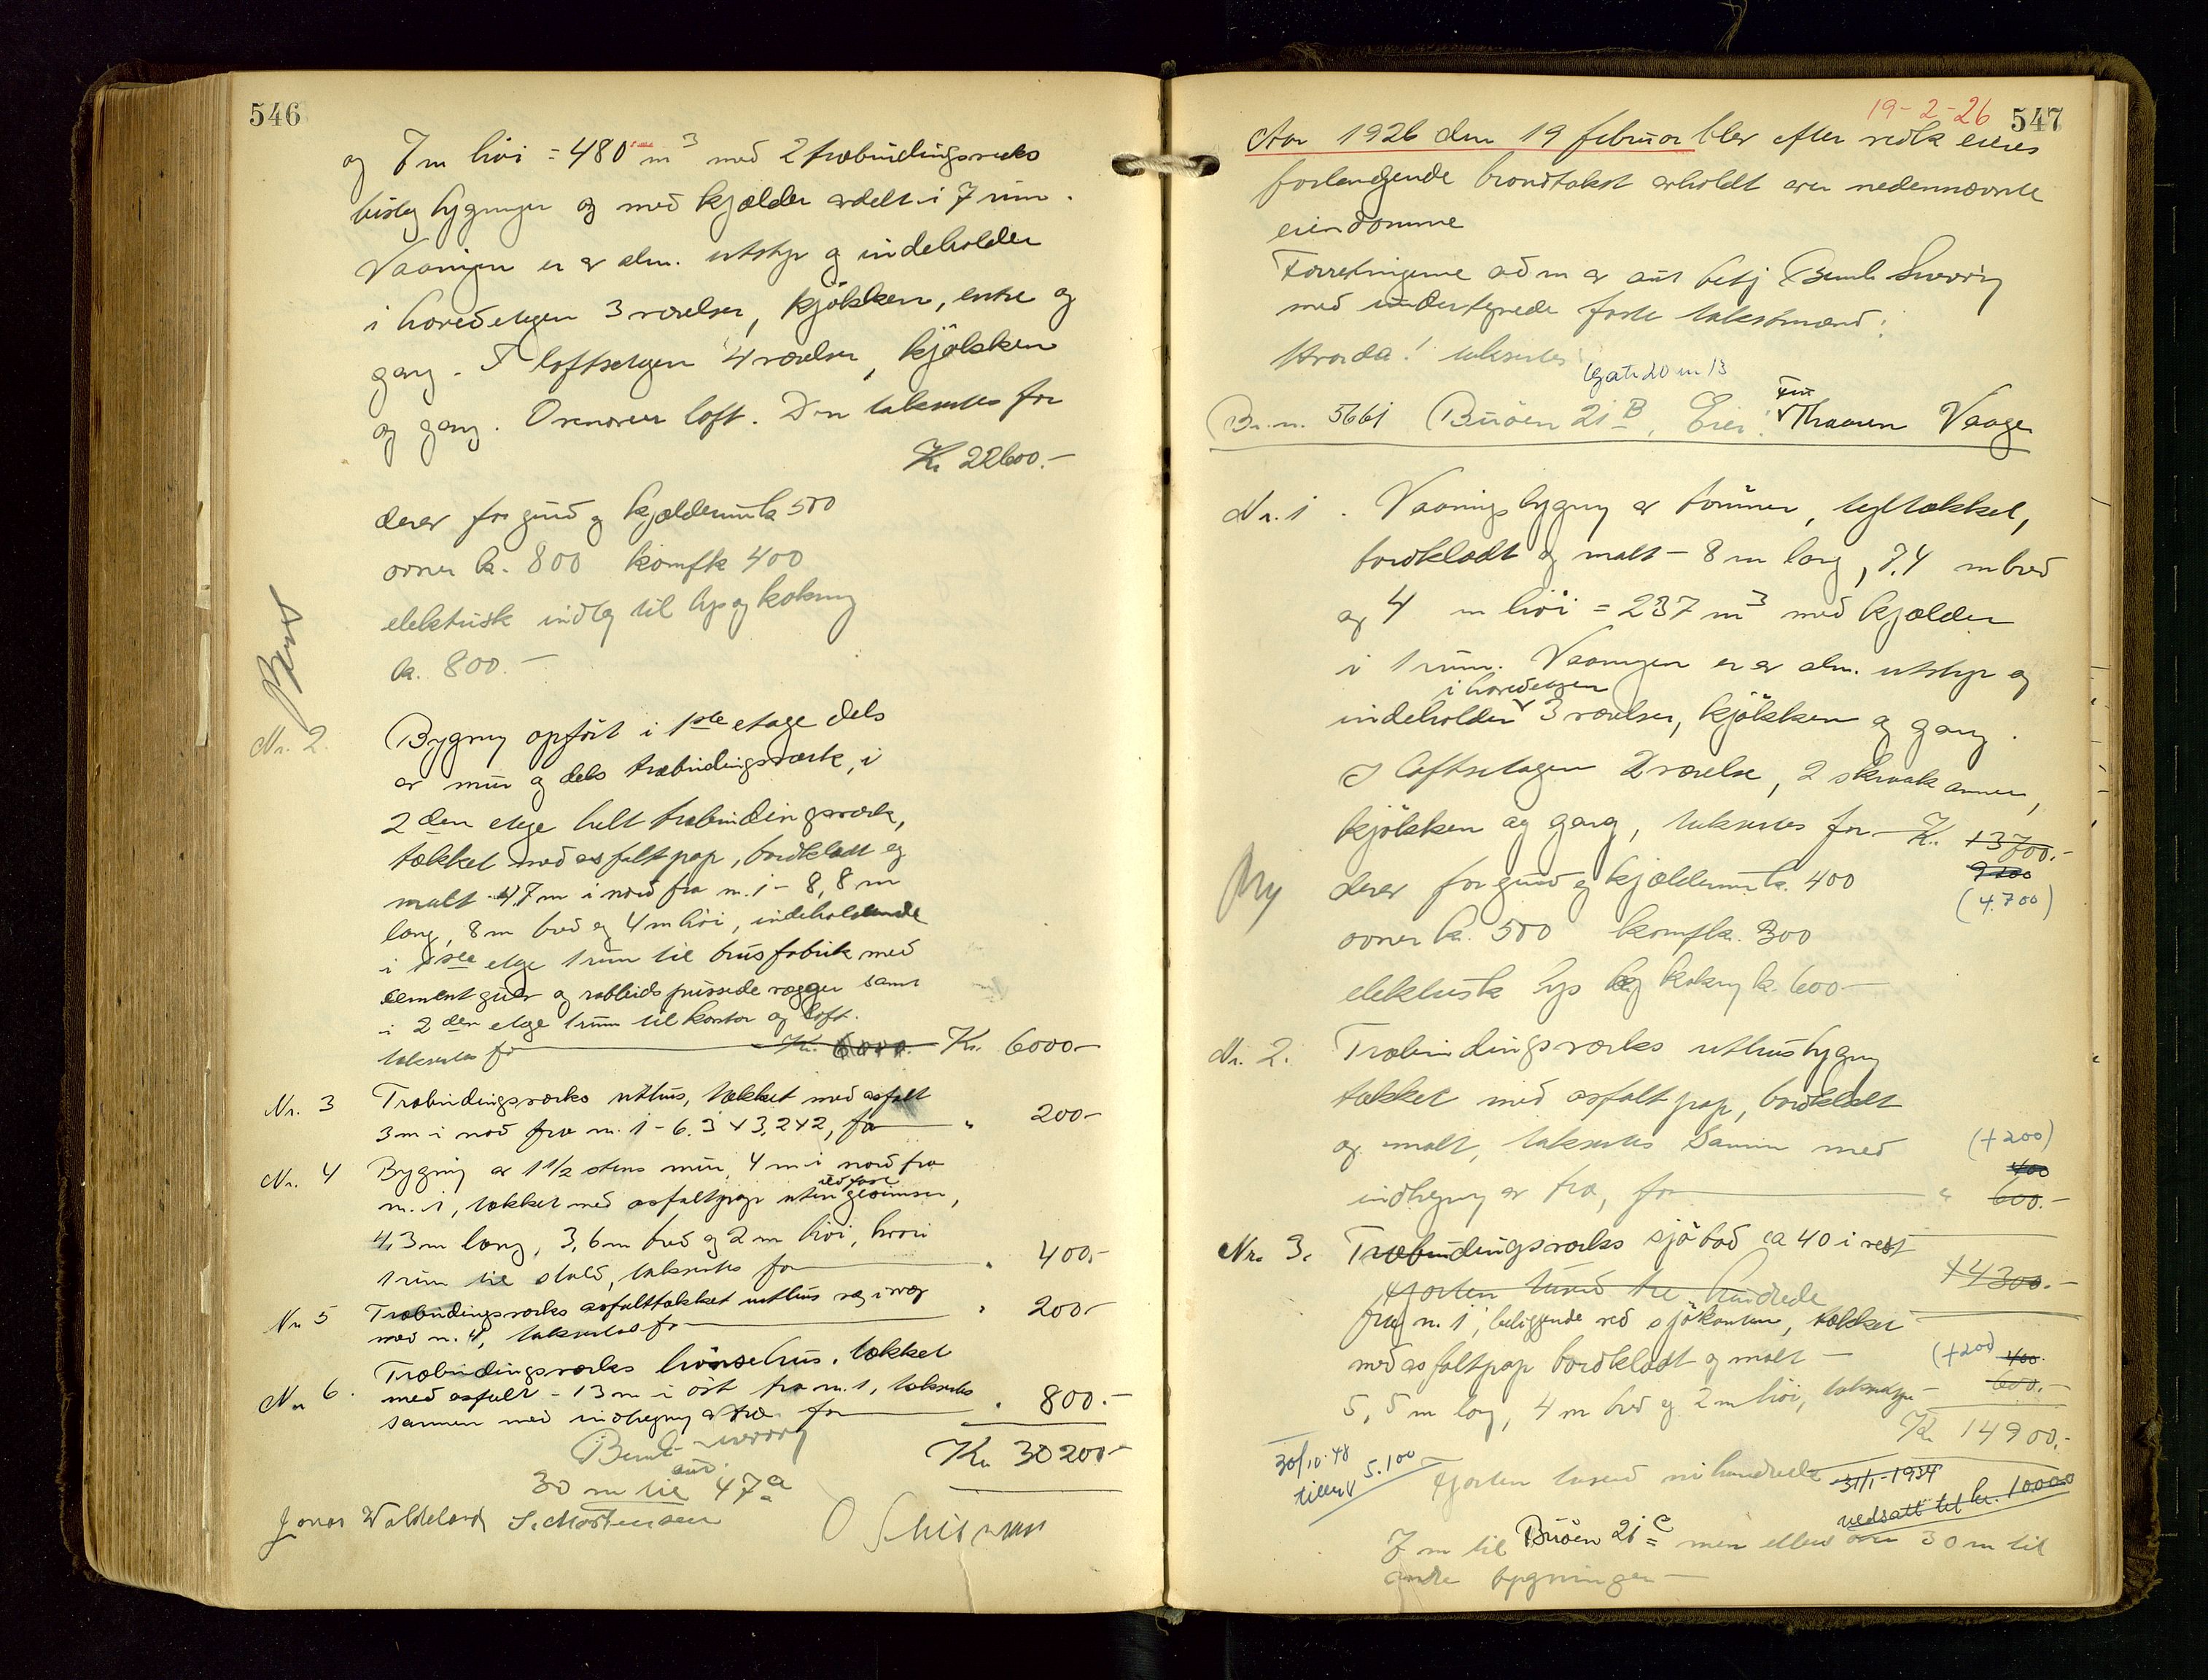 546
og 7 m høi = 480 m³ med 2 træbindingsverks
bislag bygninger og med kjælder avdelt i 7 rum.
Vaaningen er av alm. utstyr og indeholder
i hovedetagen 3 værelser, kjøkken, entre og
gang. I loftsetagen 4 værelser, kjøkken
og gang. Ovenover loft. Den takseres for
Kr 22600.-
derav for grund og kjældermur k 500
ovner k. 800 komf k 400
elektrisk indlæg til lys og kokning
k. 800.-
Nr. 2. Bygning opført i 1ste etage dels
av mur og dels træbindingsværk, i
2den etage helt træbindingsværk,
tækket med asfaltpap, bordklædt og
malt - 4,7 m i nord fra nr. 1 - 8,8 m
lang, 8 m bred og 4 m høi, indeholdende
i 1ste etage 1 rum til brusfabrik med
cementgulv og rabbitspussede vægger samt
i 2den etage 1 rum til kontor og loft.
takseres for Kr. 6000. Kr. 6000-
Nr. 3 Træbindingsverks uthus, tækket med asfalt
3 m i nord fra nr. 1 - 6.3 x 3,2 x 2, for " 200-
Nr. 4 Bygning av 1 1/2 stens mur, 4 m i nord fra
nr. 1, tækket med asfaltpap uten ildfast gesimser,
4,3 m lang, 3,6 m bred og 2 m høi, hvori
1 rum til stald, takseres for " 400.-
Nr 5 Træbindingsverks asfalttækket uthus væg i væg
med nr. 4, takseres for " 200-
Nr 6. Træbindingsverks hønsehus, tækket
med asfalt - 13 m i øst fra nr. 1, takseres
sammen med indhegning av træ for " 800.-
Kr 30200.-
30 m til 47a
Jonas Waldeland S. Mortensen
547
19-2-26
Aar 1926 den 19 februar blev efter vedk eieres
forlangende brandtakst avholdt over nedennævnte
eiendomme
Forretningerne adm av aut betj
med undertegnede faste takstmænd:
Hvorda! takseres
(gate 20 nr 13
Br. nr. 5661 Buøen 21 B, Eier: Fru Thamen Vaage
Nr. 1. Vaaningsbygning av tømmer, tegltækket,
bordklædt og malt - 8 m lang, 7.4 m bred
og 4 m høi = 237 m³ med kjælder
i 1 rum. Vaaningen er av alm. utstyr og
i hovedetagen
indeholder 3 værelser, kjøkken og gang.
I loftsetagen 2 værelse, 2 skraakammer,
kjøkken og gang, takseres for Kr. 13700.-
9200
derav for grund og kjældermur k. 400 (4.700)
ovner k. 500 komf k. 300
elektrisk lys og kokning k. 600-
Nr. 2. Træbindingsverks uthusbygning
tækket med asfaltpap, bordklædt
og malt, takseres sammen med (+200)
400
indhegning av træ, for " 600.-
Nr. 3. Træbindingsverks sjøbod ca 40 i vest
14300.-
Fjorten tusind tre hundrede
fra nr. 1, beliggende ved sjøkanten, tækket
med asfaltpap bordklædt og malt - (+200) 400.
5,5 m lang, 4 m bred og 2 m høi, takseres 600.-
Kr 14900.-
30/10-48
tillegg 5.100
Fjorten tusind nihundrede
31/1-1934
nedsatt til kr. 10000
7 m til Buøen 21 C men ellers over 30 m til
andre bygninger -